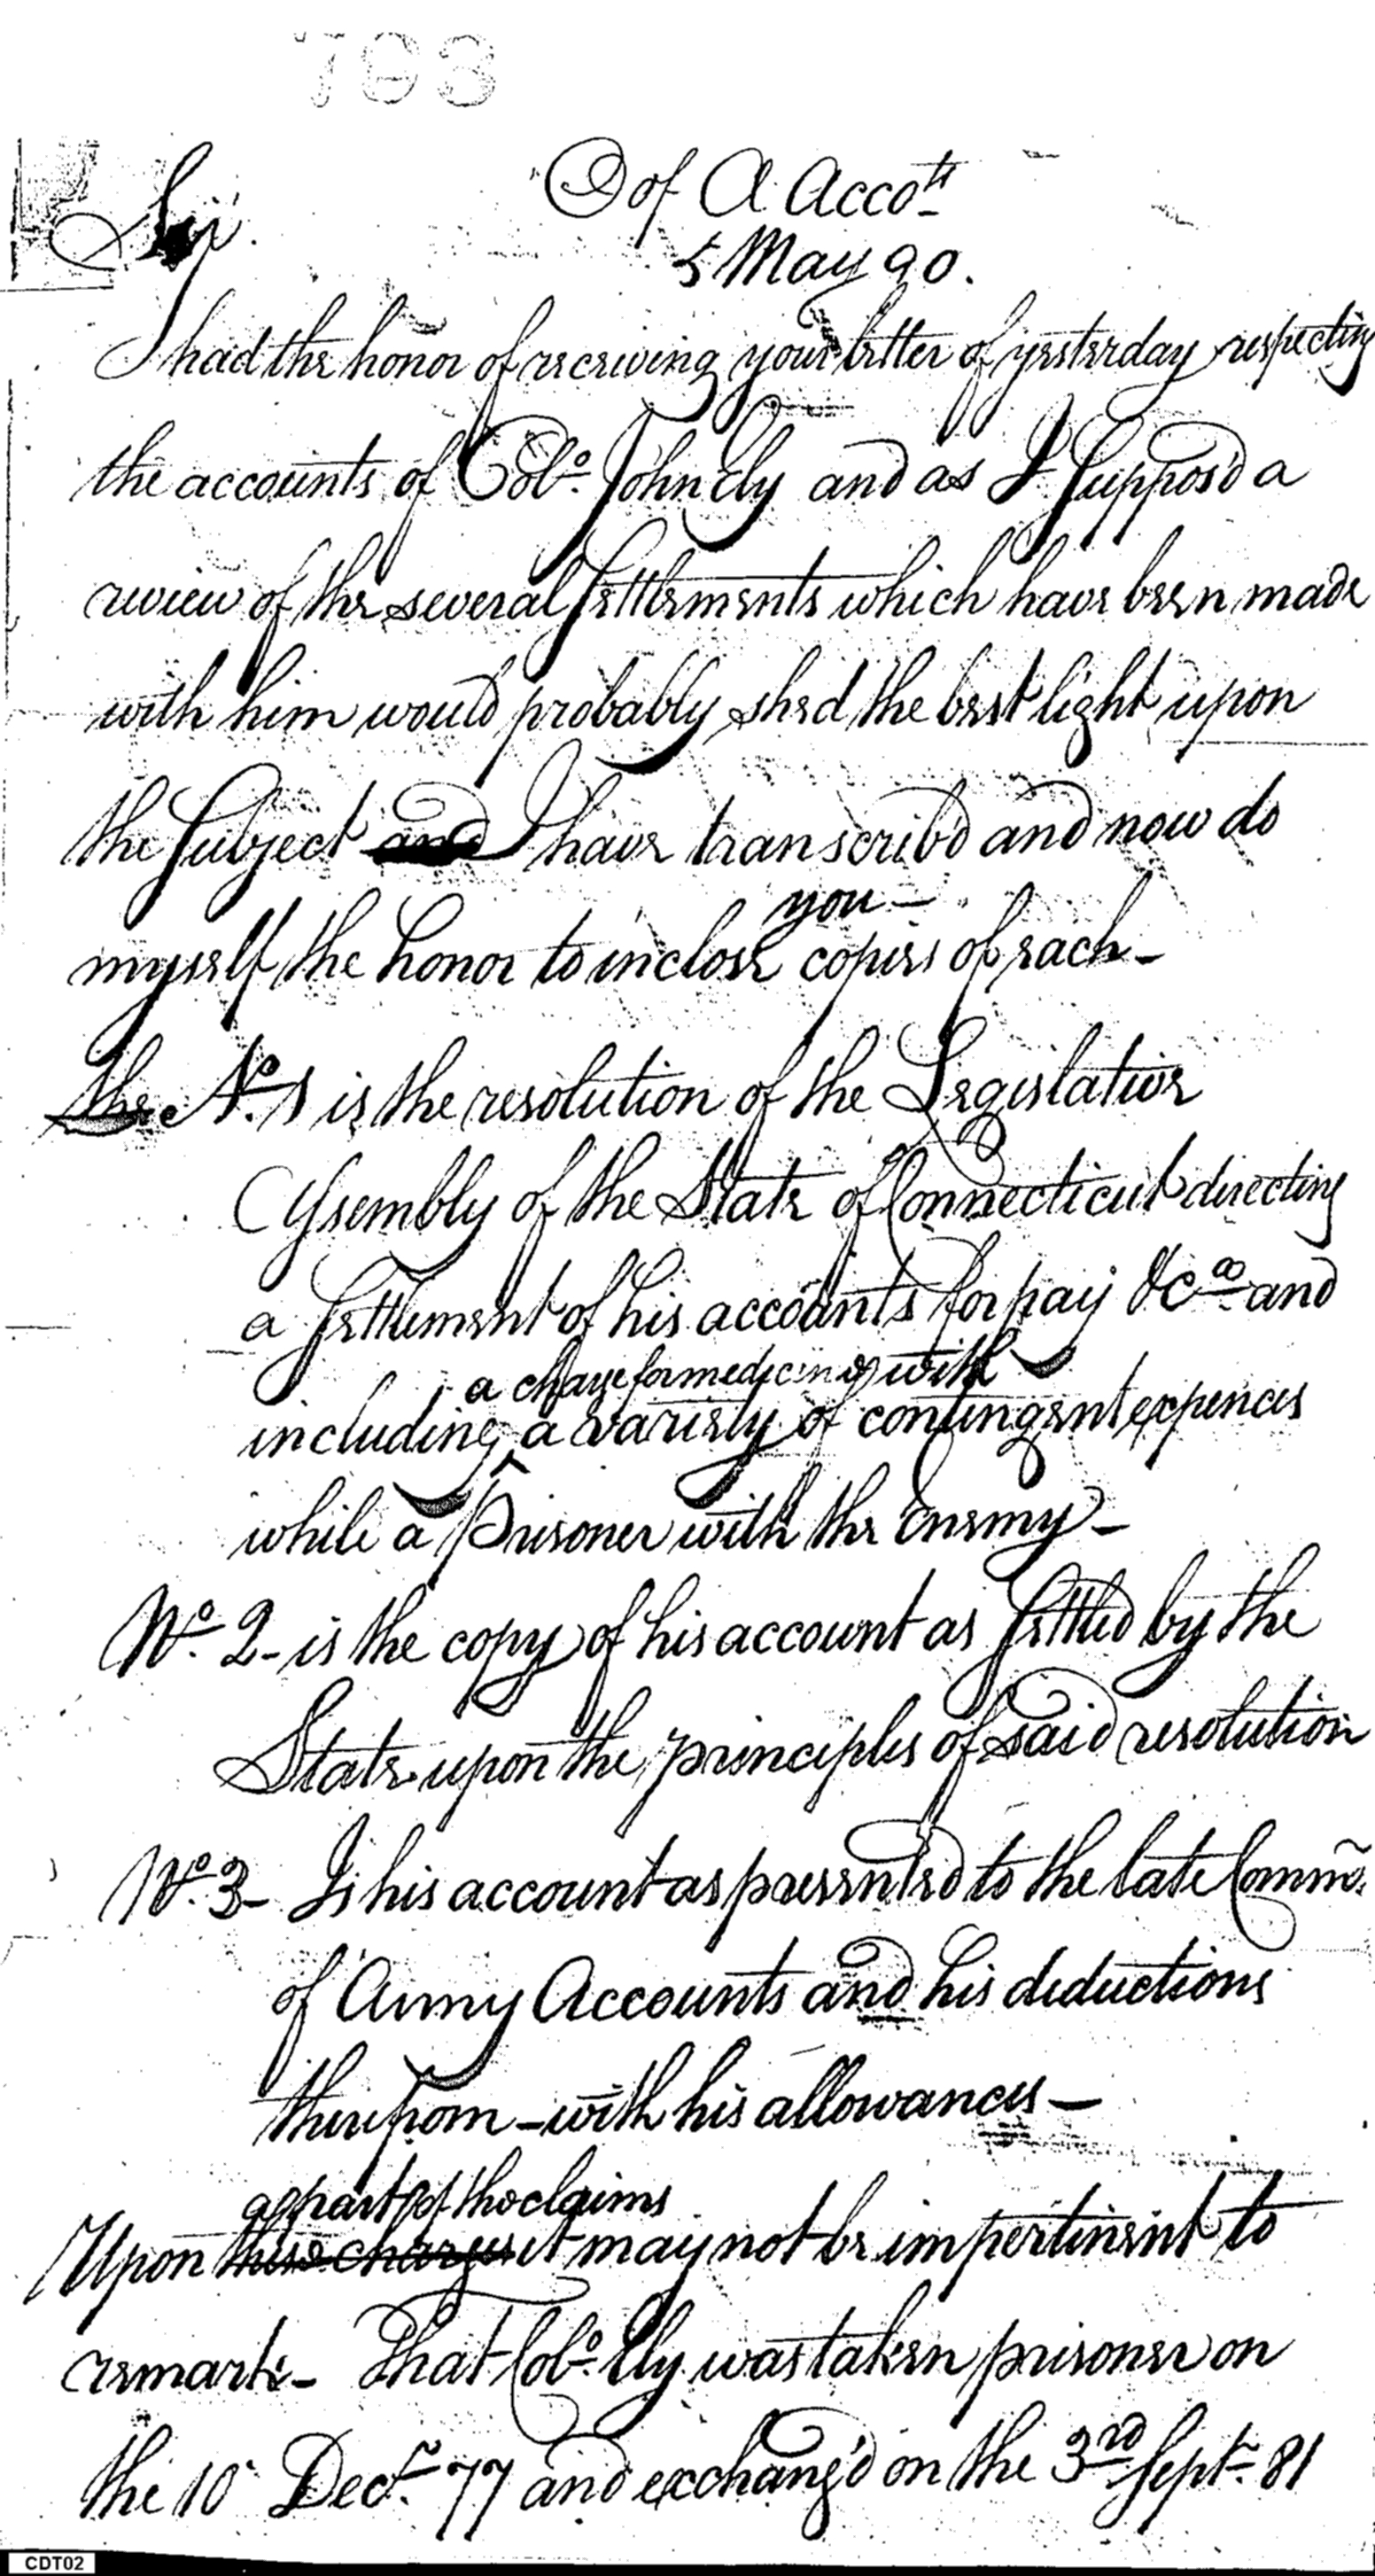 793
O of A Accots
Sir.
5 May 90.
I had the honor of receiving your letter of yesterday respecting
the accounts of Colo. John Ely and as I Suppos'd a
review of the several Settlements which have been made
with him would probably shed the best light upon
the Subject and I have transcrib'd and now do
you -
myself the honor to inclose copies of each -
the No. 1 is the resolution of the Legislative
Assembly of the State of Connecticut directing
a Settlement of his accounts for pay &ca and
a charge for medicines with
including a variety of contingent expences
while a Prisoner with the Enemy -
No. 2 - is the copy of his account as Settled by the
State upon the principles of said resolution
No. 3 - Is his account as presented to the late Commr.
of Army Accounts and his deductions
therefrom - with his allowances -
part of the claims
Upon these charges it may not be impertinent to
remark - That Colo. Ely was taken prisoner on
the 10 Decr. 77 and exchang'd on the 3rd Sept. 81
CDT02